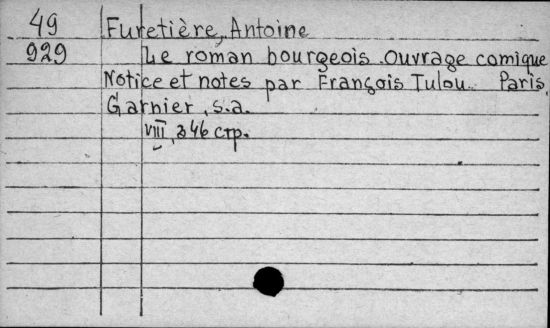 49 Furetière, Antoine
929 Le roman bourgeois. Ouvrage comique
Notice et notes par François Tulou. Paris,
Garnier, s.a.
VIII, 346 стр.